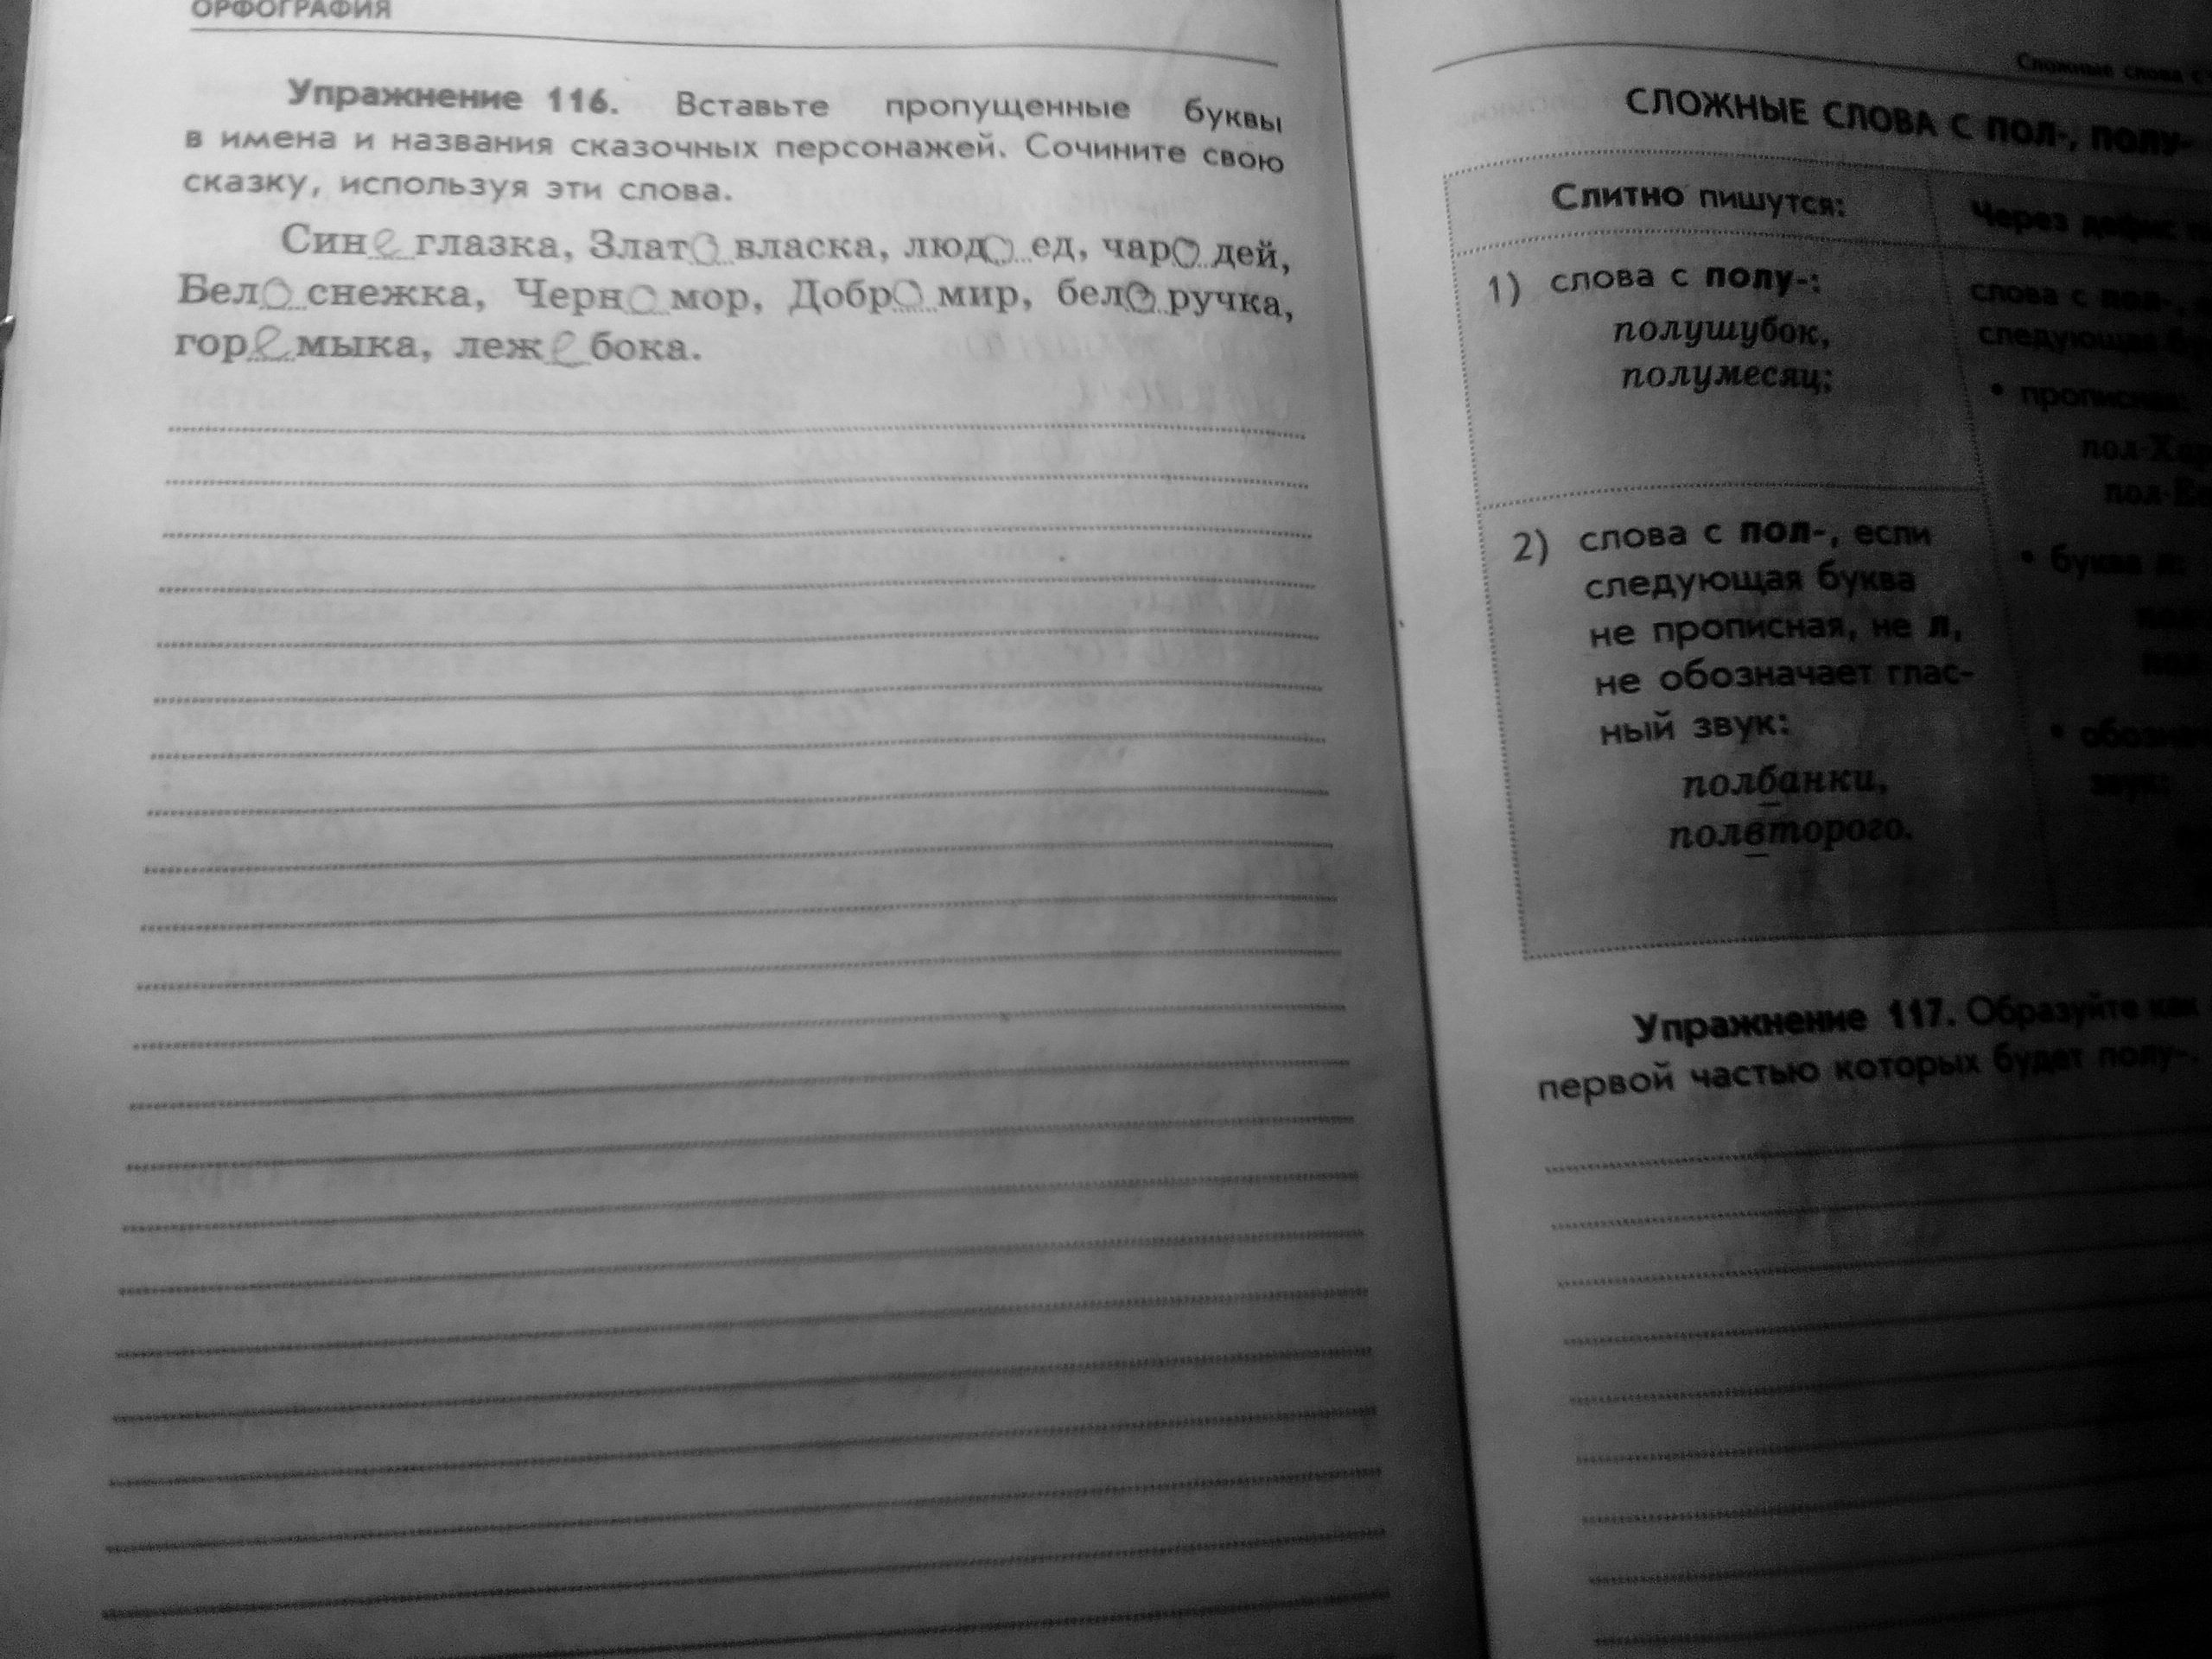 ОРФОГРАФИЯ
Упражнение 116. Вставьте пропущенные буквы
в имена и названия сказочных персонажей. Сочините свою
сказку, используя эти слова.
Сине глазка, Злато власка, людо ед, чаро дей,
Бело снежка, Черно мор, Добро мир, бело ручка,
горе мыка, леже бока.
Сложные слова с
СЛОЖНЫЕ СЛОВА С ПОЛ-, ПОЛУ-
Слитно пишутся:
Через дефис
1) слова с полу-:
полушубок,
полумесяц;
2) слова с пол-, если
следующая буква
не прописная, не л,
не обозначает глас-
ный звук:
полбанки,
полвторого.
слова с пол-,
следующая
• прописная:
• буква л:
Упражнение 117. Образуйте как
первой частью которых будет полу-.